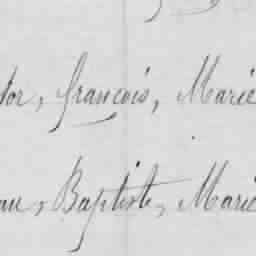 tor, françois, Marie
an, Baptiste, Marie